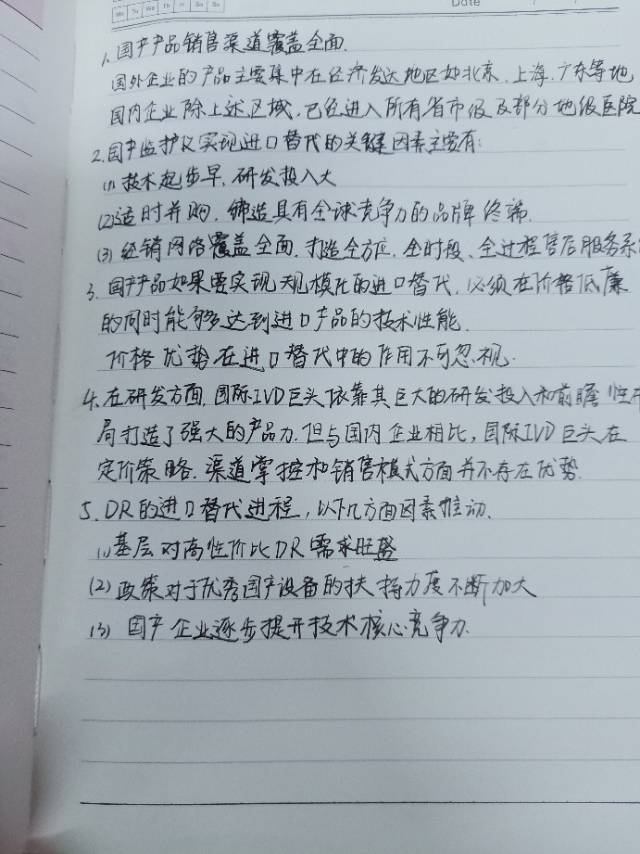 Mo Tu We Th Fr Sa Su
Date
1、国产产品销售渠道覆盖全面.
国外企业的产品主要集中在经济发达地区如北京、上海、广东等地,
国内企业除上述区域,已经进入所有省市级及部分地级医院
2.国产监护仪实现进口替代的关键因素主要有:
(1)技术起步早,研发投入大
(2)适时并购,缔造具有全球竞争力的品牌终端.
(3)经销网络覆盖全面,打造全方位、全时段、全过程售后服务系
3.国产产品如果要实现大规模化的进口替代,必须在价格低廉
的同时能够达到进口产品的技术性能.
价格优势在进口替代中的作用不可忽视.
4.在研发方面,国际IVD巨头依靠其巨大的研发投入和前瞻性
局打造了强大的产品力.但与国内企业相比,国际IVD巨头在
定价策略、渠道掌控和销售模式方面并不存在优势.
5.DR的进口替代进程,以下几方面因素推动.
(1)基层对高性价比DR需求旺盛
(2)政策对于优秀国产设备的扶持力度不断加大
(3)国产企业逐步提升技术核心竞争力.